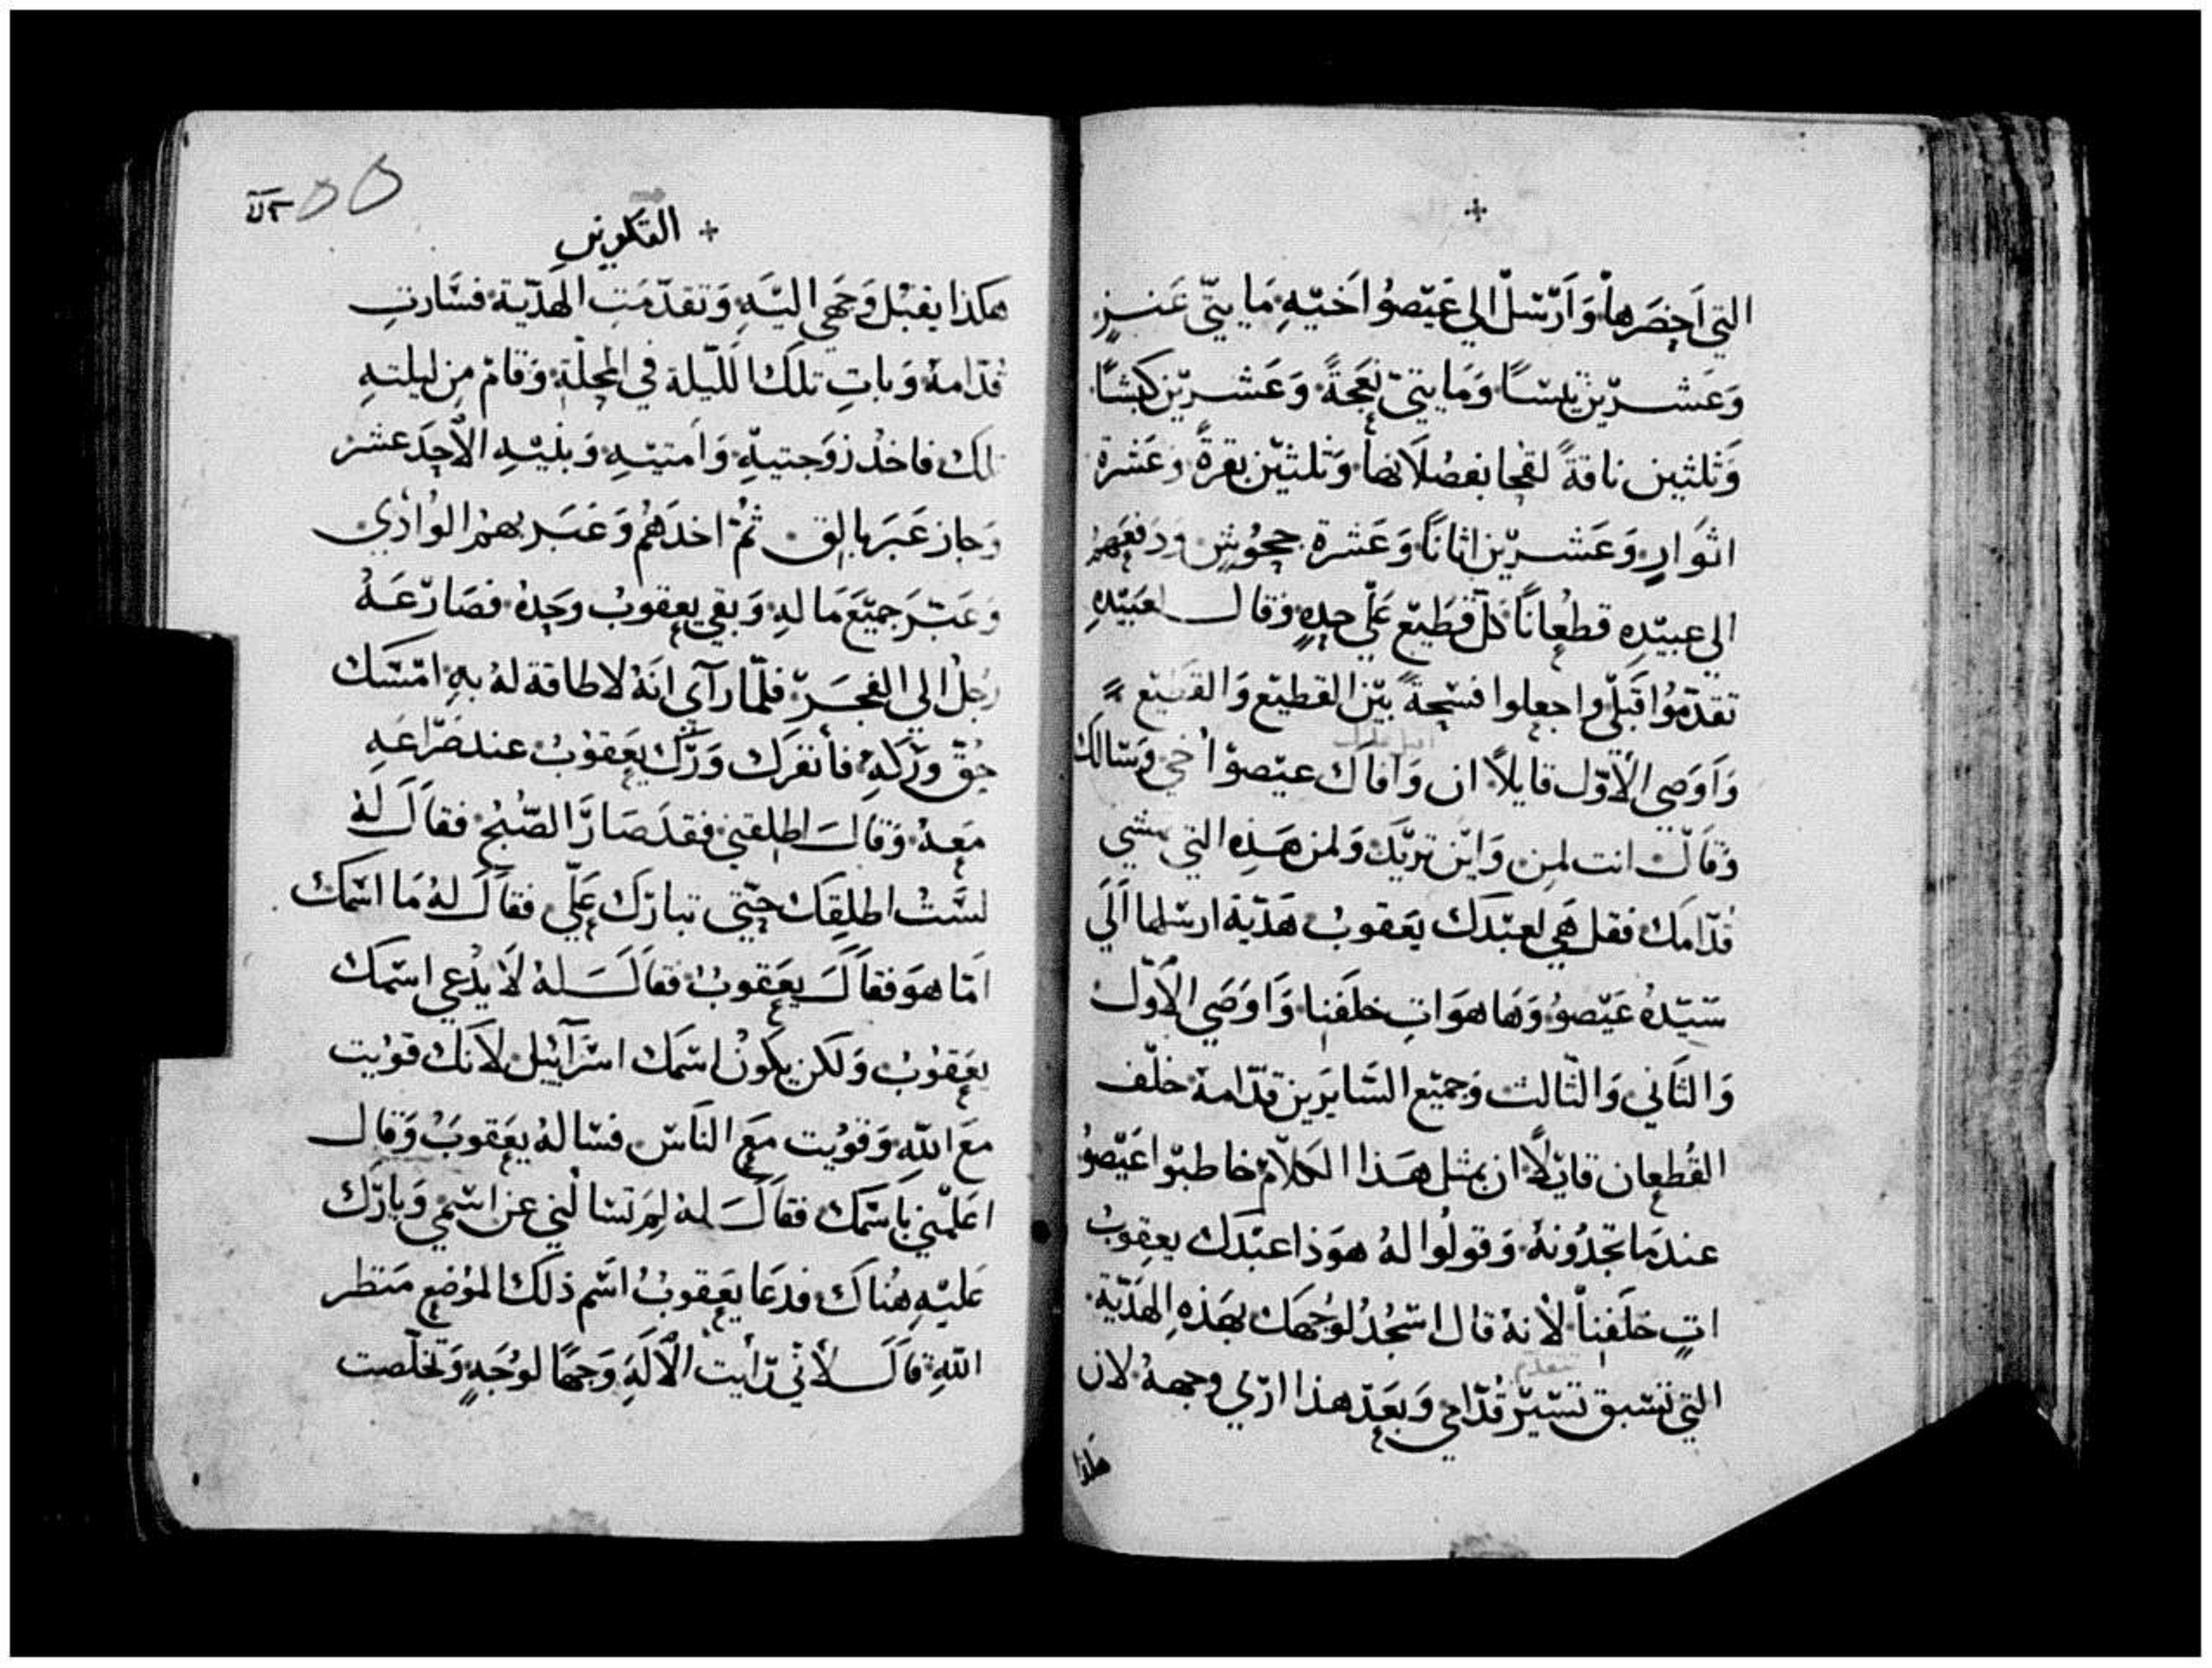 التي احضرها وارسل الي عيصوا اخيه مايتي عنز
وعشرين تيسا ومايتي نعجة وعشرين كبشا
وثلثين ناقة لقحا بفصلانها وثلثين بقرة وعشرة
اثوار وعشرين اثانا وعشرة جحوش ودفعهم
الي عبيده قطعانا كل قطيع علي حده وقال لعبيده
تقدموا قبلي واجعلوا فسحة بين القطيع والقطيع
واوصي الاول قايلا ان وافاك عيصوا اخي وسالك
وقال انت لمن واين تريد ولمن هذه التي تمشي
قدامك فقل هي لعبدك يعقوب هدية ارسلها الي
سيده عيصو وها هو ات خلفنا واوصي الاول
والثاني والثالث وجميع السايرين قدامه خلف
القطعان قايلا ان بمثل هذا الكلام خاطبوا عيصو
عندما تجدونه وقولوا له هوذا عبدك يعقوب
ات خلفنا لانه قال اسجد لوجهك بهذه الهدية
التي تسبق تسير قدامي وبعد هذا اري وجهه لان
هكذا
٥٥
+ التكوين
هكذا يقبل وجهي اليه وتقدمت الهدية فسارت
قدامه وبات تلك الليلة في المحلة وقام من ليلته
تلك فاخذ زوجتيه وامتيه وبنيه الاحد عشر
وجاز عبر يابوق ثم اخذهم وعبر بهم الوادي
وعبر جميع ما له وبقي يعقوب وحده فصارعه
رجل الي الفجر فلما رآي انه لا طاقة له به امسك
حق وركه فانفرك ورك يعقوب عند صراعه
معه وقال اطلقني فقد صار الصبح فقال له
لست اطلقك حتي تبارك علي فقال له ما اسمك
اما هو فقال يعقوب فقال له لا يدعي اسمك
يعقوب ولكن يكون اسمك اسرآييل لانك قويت
مع الله وقويت مع الناس فساله يعقوب وقال
اعلمني باسمك فقال له لم تسالني عن اسمي وبارك
عليه هناك فدعا يعقوب اسم ذلك الموضع منظر
الله قال لاني رايت الاله وجها لوجه وتخلصت